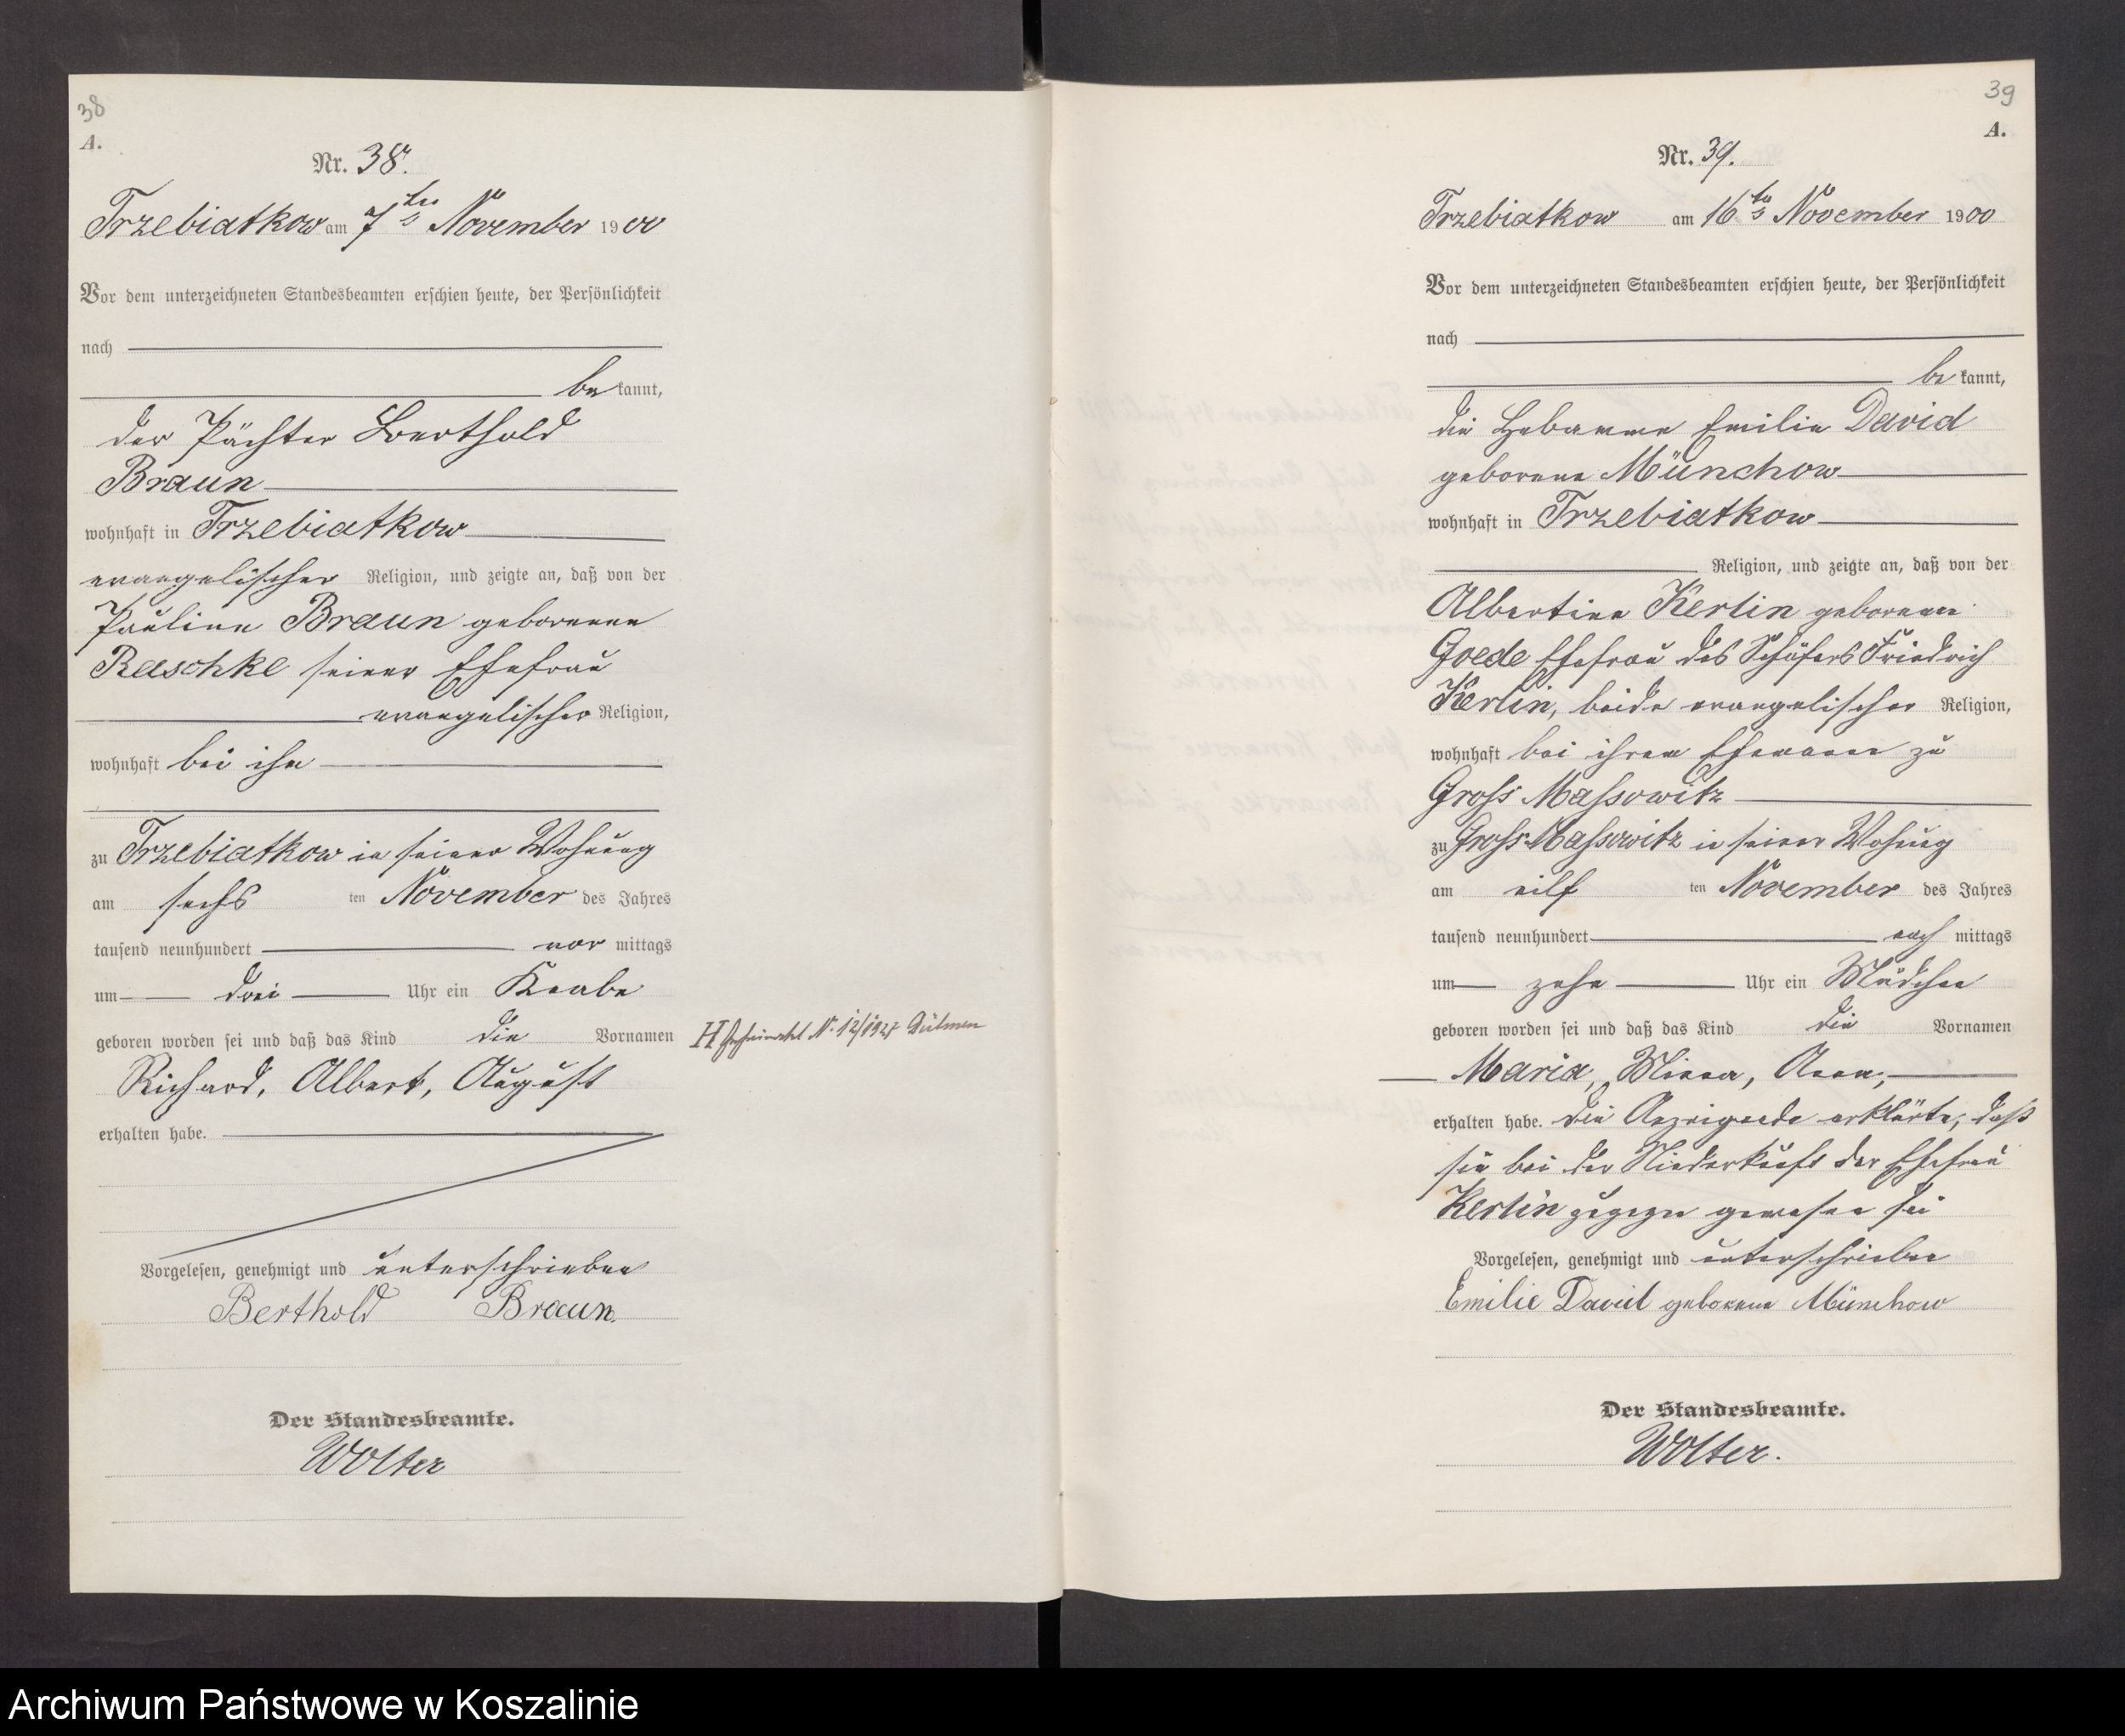 38
A.
Nr. 38.
Trzebiatkow am 7ten November 1900
Vor dem unterzeichneten Standesbeamten erschien heute, der Persönlichkeit
nach
be kannt,
der Pächter Berthold
Braun
wohnhaft in Trzebiatkow
evangelischer Religion, und zeigte an, daß von der
Pauline Braun geborenen
Raschke seiner Ehefrau
evangelischer Religion,
wohnhaft bei ihm
zu Trzebiatkow in seiner Wohnung
am sechs ten November des Jahres
tausend neunhundert vor mittags
um drei Uhr ein Knabe
geboren worden sei und daß das Kind die Vornamen
H N. 12/1927 Dülmen
Richard, Albert, August
erhalten habe.
Vorgelesen, genehmigt und unterschrieben
Berthold Braun.
Der Standesbeamte.
Wolter
39
A.
Nr. 39.
Trzebiatkow am 16ten November 1900
Vor dem unterzeichneten Standesbeamten erschien heute, der Persönlichkeit
nach
be kannt,
die Hebamme Emilie David
geborene Münchow
wohnhaft in Trzebiatkow
Religion, und zeigte an, daß von der
Albertine Kerlin geborenen
Goede Ehefrau des Schäfers Friedrich
Kerlin, beide evangelischer Religion,
wohnhaft bei ihrem Ehemann zu
Gross Massowitz
zu Gross Massowitz in seiner Wohnung
am eilf ten November des Jahres
tausend neunhundert nach mittags
um zehn Uhr ein Mädchen
geboren worden sei und daß das Kind die Vornamen
Maria, Minna, Anna,
erhalten habe. Die Anzeigende erklärte, daß
sie bei der Niederkunft der Ehefrau
Kerlin zugegen gewesen sei
Vorgelesen, genehmigt und unterschrieben
Emilie David geborene Münchow
Der Standesbeamte.
Wolter.
Archiwum Państwowe w Koszalinie